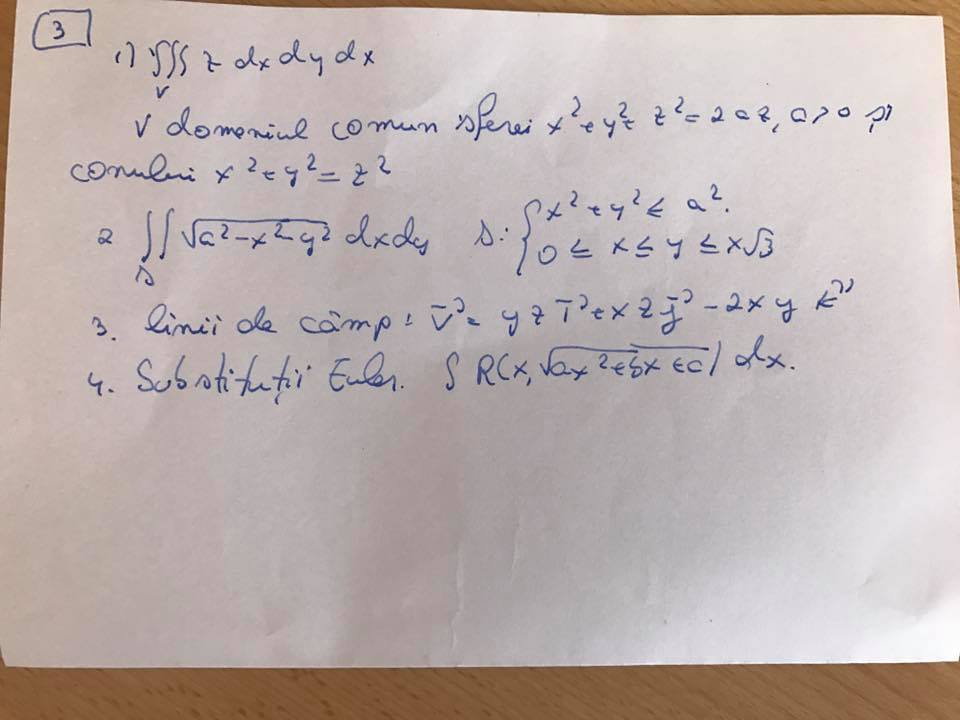 3
1) ∭ z dx dy dx
V
V domeniul comun sferei x²+y²+z²=2az, a>0 și
conului x²+y²=z²
2 ∬ √a²-x²-y² dxdy D: { x²+y² ≤ a².
D
0 ≤ x ≤ y ≤ x√3
3. linii de câmp: v̄ = yz ī + xz j̄ - 2xy k̄
4. Substituții Euler. ∫ R(x, √ax²+bx+c) dx.